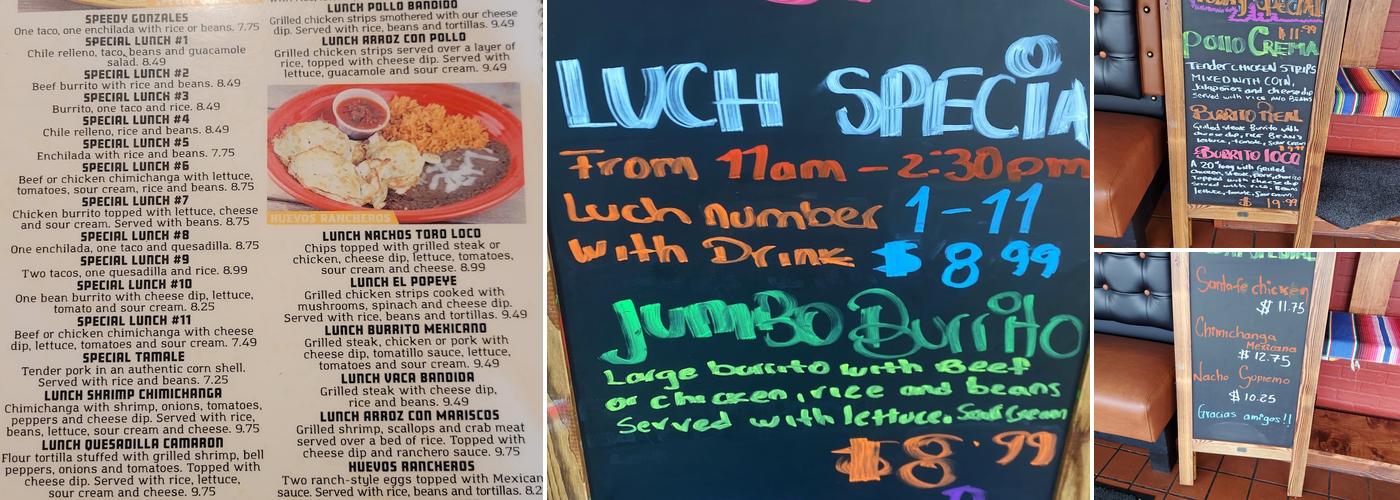 SPEEDY GONZALES
One taco, one enchilada with rice or beans. 7.75
SPECIAL LUNCH #1
Chile relleno, taco, beans and guacamole
salad. 8.49
SPECIAL LUNCH #2
Beef burrito with rice and beans. 8.49
SPECIAL LUNCH #3
Burrito, one taco and rice. 8.49
SPECIAL LUNCH #4
Chile relleno, rice and beans. 8.49
SPECIAL LUNCH #5
Enchilada with rice and beans. 7.75
SPECIAL LUNCH #6
Beef or chicken chimichanga with lettuce,
tomatoes, sour cream, rice and beans. 8.75
SPECIAL LUNCH #7
Chicken burrito topped with lettuce, cheese
and sour cream. Served with beans. 8.75
SPECIAL LUNCH #8
One enchilada, one taco and quesadilla. 8.75
SPECIAL LUNCH #9
Two tacos, one quesadilla and rice. 8.99
SPECIAL LUNCH #10
One bean burrito with cheese dip, lettuce,
tomato and sour cream. 8.25
SPECIAL LUNCH #11
Beef or chicken chimichanga with cheese
dip, lettuce, tomatoes and sour cream. 7.49
SPECIAL TAMALE
Tender pork in an authentic corn shell.
Served with rice and beans. 7.25
LUNCH SHRIMP CHIMICHANGA
Chimichanga with shrimp, onions, tomatoes,
peppers and cheese dip. Served with rice,
beans, lettuce, sour cream and cheese. 9.75
LUNCH QUESADILLA CAMARON
Flour tortilla stuffed with grilled shrimp, bell
peppers, onions and tomatoes. Topped with
cheese dip. Served with rice, lettuce,
sour cream and cheese. 9.75
LUNCH POLLO BANDIDO
Grilled chicken strips smothered with our cheese
dip. Served with rice, beans and tortillas. 9.49
LUNCH ARROZ CON POLLO
Grilled chicken strips served over a layer of
rice, topped with cheese dip. Served with
lettuce, guacamole and sour cream. 9.49
HUEVOS RANCHEROS
LUNCH NACHOS TORO LOCO
Chips topped with grilled steak or
chicken, cheese dip, lettuce, tomatoes,
sour cream and cheese. 8.99
LUNCH EL POPEYE
Grilled chicken strips cooked with
mushrooms, spinach and cheese dip.
Served with rice, beans and tortillas. 9.49
LUNCH BURRITO MEXICANO
Grilled steak, chicken or pork with
cheese dip, tomatillo sauce, lettuce,
tomatoes and sour cream. 9.49
LUNCH VACA BANDIDA
Grilled steak with cheese dip,
rice and beans. 9.49
LUNCH ARROZ CON MARISCOS
Grilled shrimp, scallops and crab meat
served over a bed of rice. Topped with
cheese dip and ranchero sauce. 9.75
HUEVOS RANCHEROS
Two ranch-style eggs topped with Mexican
sauce. Served with rice, beans and tortillas. 8.2
LUCH SPECIA
From 11am - 2:30pm
Luch number 1-11
With Drink $ 8.99
Jumbo Burrito
Large burrito with Beef
or chicken, rice and beans
Served with lettuce. Sour Cream
$8.99
Today Special
$11.99
Pollo Crema
Tender chicken strips
mixed with corn,
Jalapeños and cheese dip
served with rice and beans
Burrito Real
Grilled steak Burrito with
cheese dip, rice Beans
lettuce, tomate, sour cream
Burrito loco
A 20" long with Grilled
chicken, steak, pork, chorizo
Topped with cheese dip
Served with rice, Beans
lettuce, tomate, sour cream
$ 19.99
Santa fe chicken
$ 11.75
Chimichanga
Mexicana
$ 12.75
Nacho Supremo
$ 10.25
Gracias amigos!!